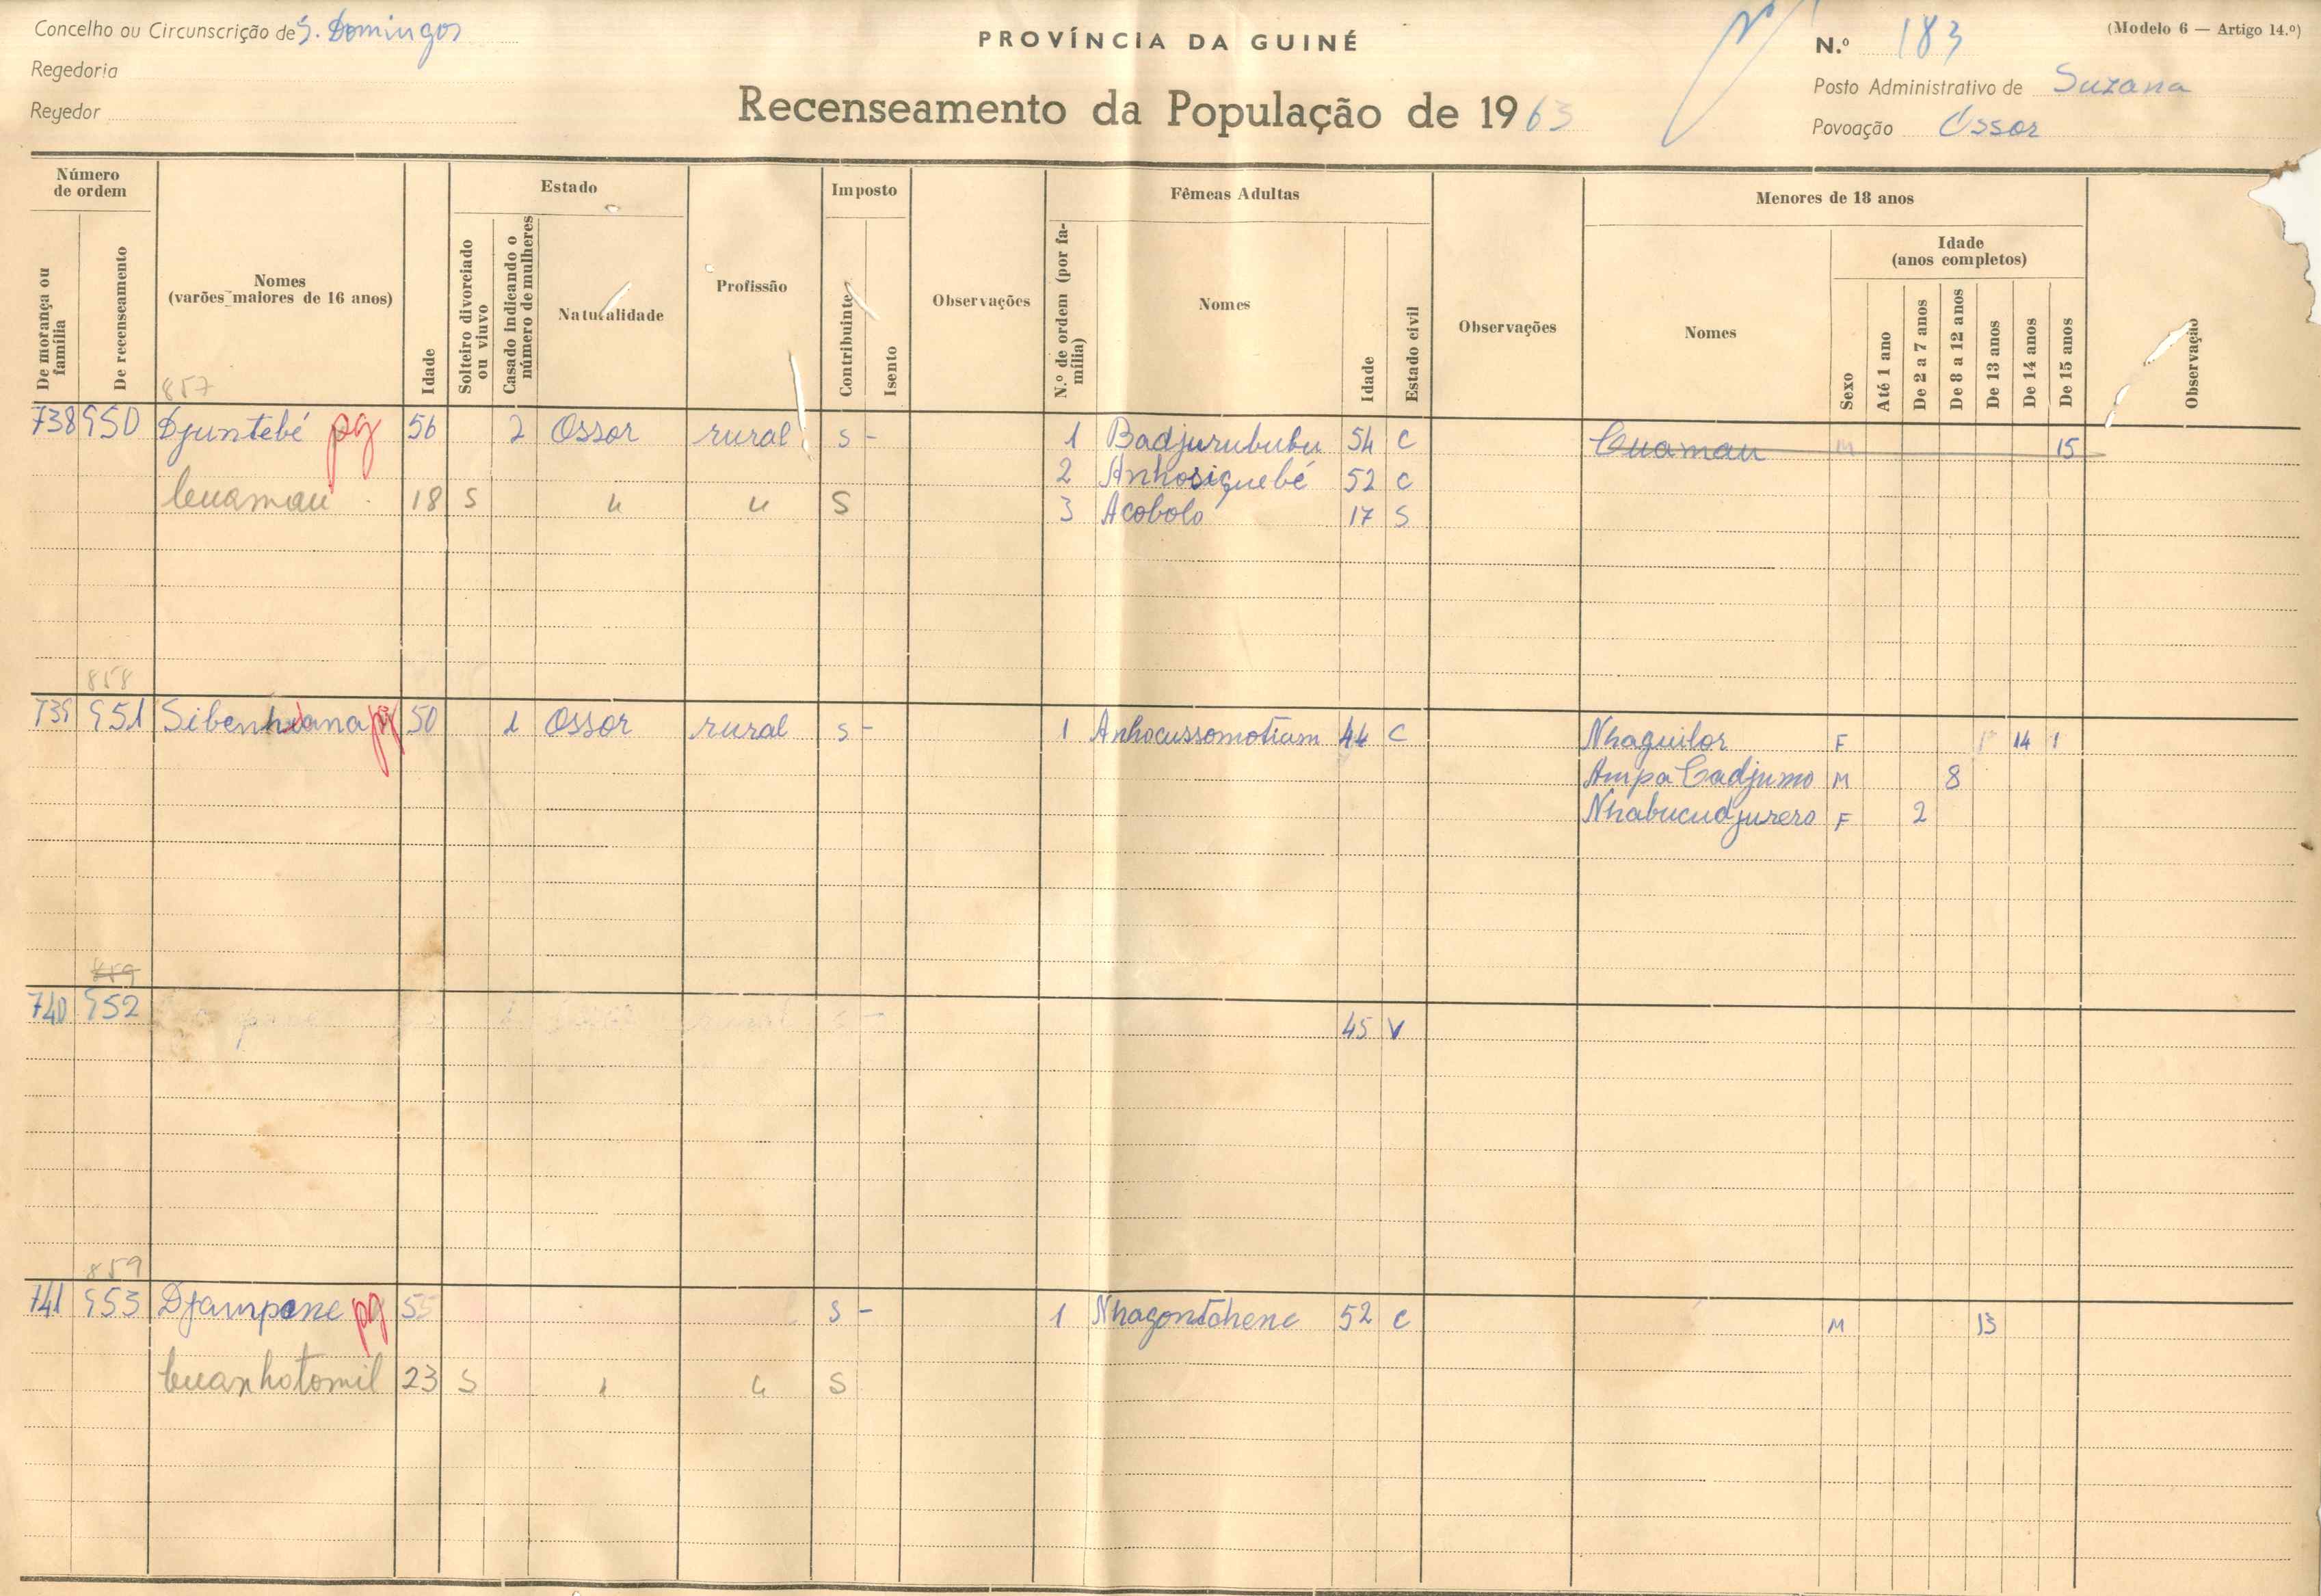 Concelho ou Circunscrição de S. Domingos
Regedoria
Regedor
PROVÍNCIA DA GUINÉ
Recenseamento da População de 1963
(Modelo 6 — Artigo 14.º)
N.º 183
Posto Administrativo de Suzana
Povoação Ossor
Número de ordem
De morança ou família
De recenseamento
Nomes
(varões maiores de 16 anos)
Idade
Estado
Solteiro divorciado ou viuvo
Casado indicando o número de mulheres
Naturalidade
Profissão
Imposto
Contribuinte
Isento
Observações
Fêmeas Adultas
N.º de ordem (por família)
Nomes
Idade
Estado civil
Observações
Menores de 18 anos
Nomes
Sexo
Idade
(anos completos)
Até 1 ano
De 2 a 7 anos
De 8 a 12 anos
De 13 anos
De 14 anos
De 15 anos
Observação
857
738 950 Djuntebé pg 56 2 Ossor rural s - 1 Badjurububu 54 C Cuamau M 15
2 Anhosiquebé 52 C
Cuamau 18 S " " S 3 Acobolo 17 S
858
739 951 50 1 Ossor rural s - 1 Anhocussomotiam 44 C Nhaguilor F 14
Ampa Cadjumo M 8
Nhabucudjurero F 2
859
740 952 s - 45 V
859
741 953 Djampene pg 55 s - 1 Nhagontchene 52 C M 13
Cuanhotomil 23 S " " S